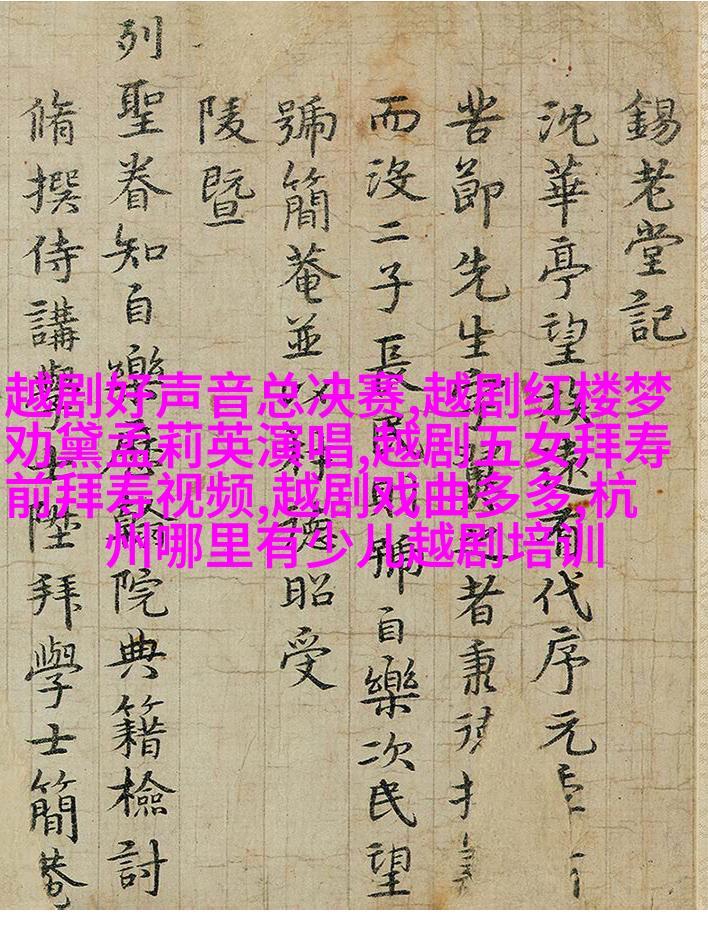 錫老堂記
沈華亭望族遠有代序元
苦節先生者秉
而没二子長民則號自樂次民望
號簡菴並以德昭受
陵暨
列聖眷知自樂院典籍檢討
脩撰侍講學士陞拜學士簡菴
越剧好声音总决赛,越剧红楼梦
劝黛孟莉英演唱,越剧五女拜寿
前拜寿视频,越剧戏曲多多,杭
州哪里有少儿越剧培训